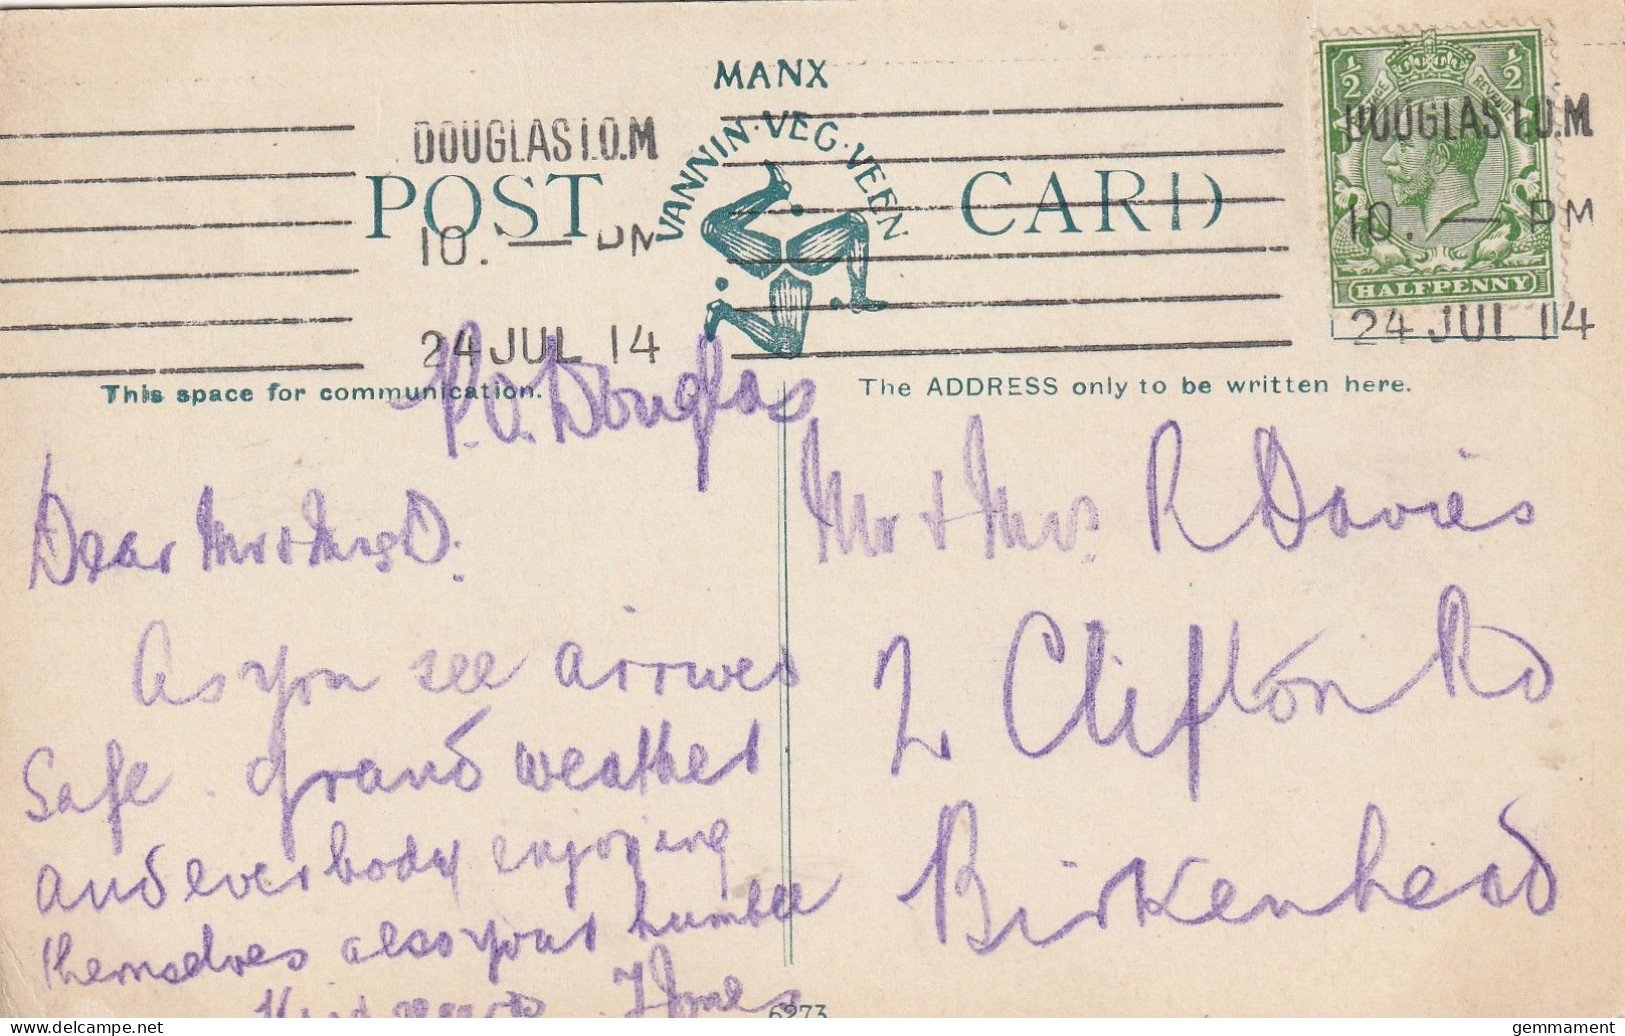 MANX
VANNIN·VEG·VEEN
POST CARD
DOUGLAS I.O.M
10. — PM
24 JUL 14
½ POSTAGE REVENUE ½
HALFPENNY
DOUGLAS I.O.M
10. — PM
24 JUL 14
This space for communication.
The ADDRESS only to be written here.
P.O. Douglas
Dear Mr & Mrs D.
As you see arrived
safe. Grand weather
and everybody enjoying
themselves also your humble
Kind
Mr & Mrs. R Davies
2 Clifton Rd
Birkenhead
6273
gemmament